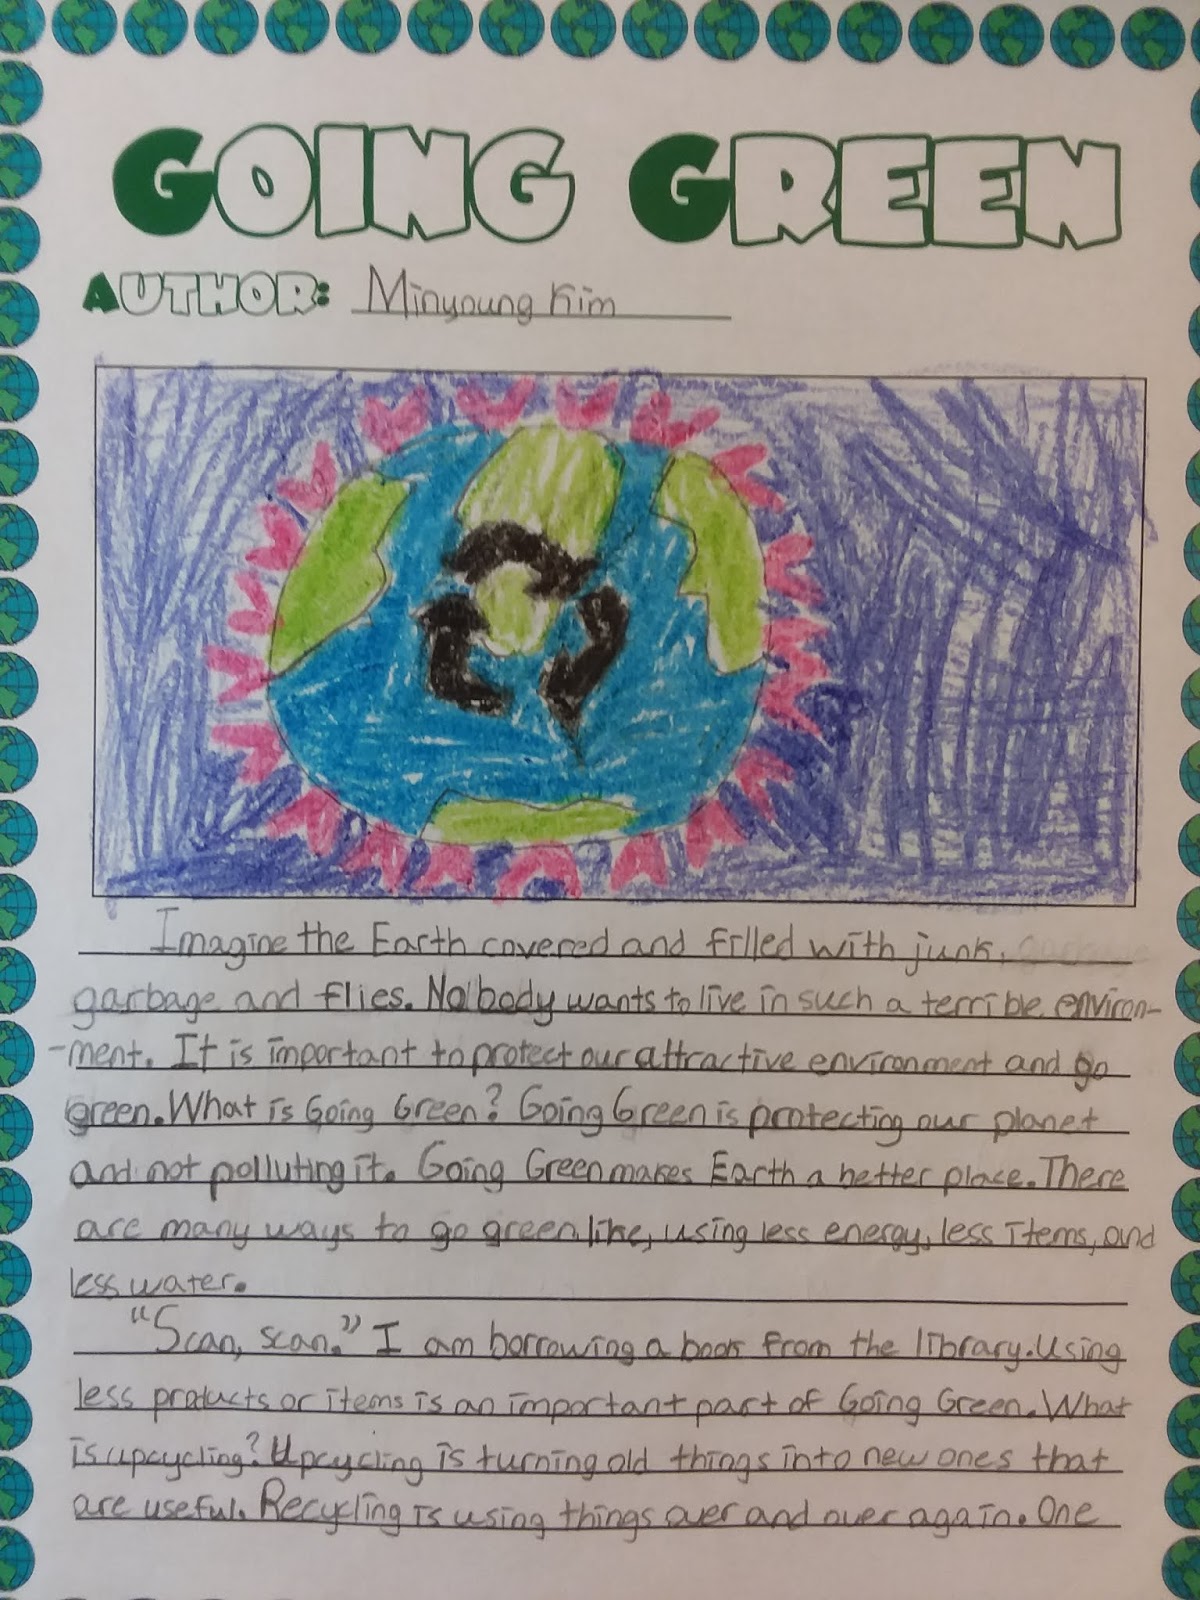 GOING GREEN
AUTHOR: Minyoung Kim
Imagine the Earth covered and filled with junk,
garbage and flies. Nobody wants to live in such a terrible environ-
-ment. It is important to protect our attractive environment and go
green. What is Going Green? Going Green is protecting our planet
and not polluting it. Going Green makes Earth a better place. There
are many ways to go green like, using less energy, less items, and
less water.
"Scan, scan." I am borrowing a book from the library. Using
less products or items is an important part of Going Green. What
is upcycling? Upcycling is turning old things into new ones that
are useful. Recycling is using things over and over again. One